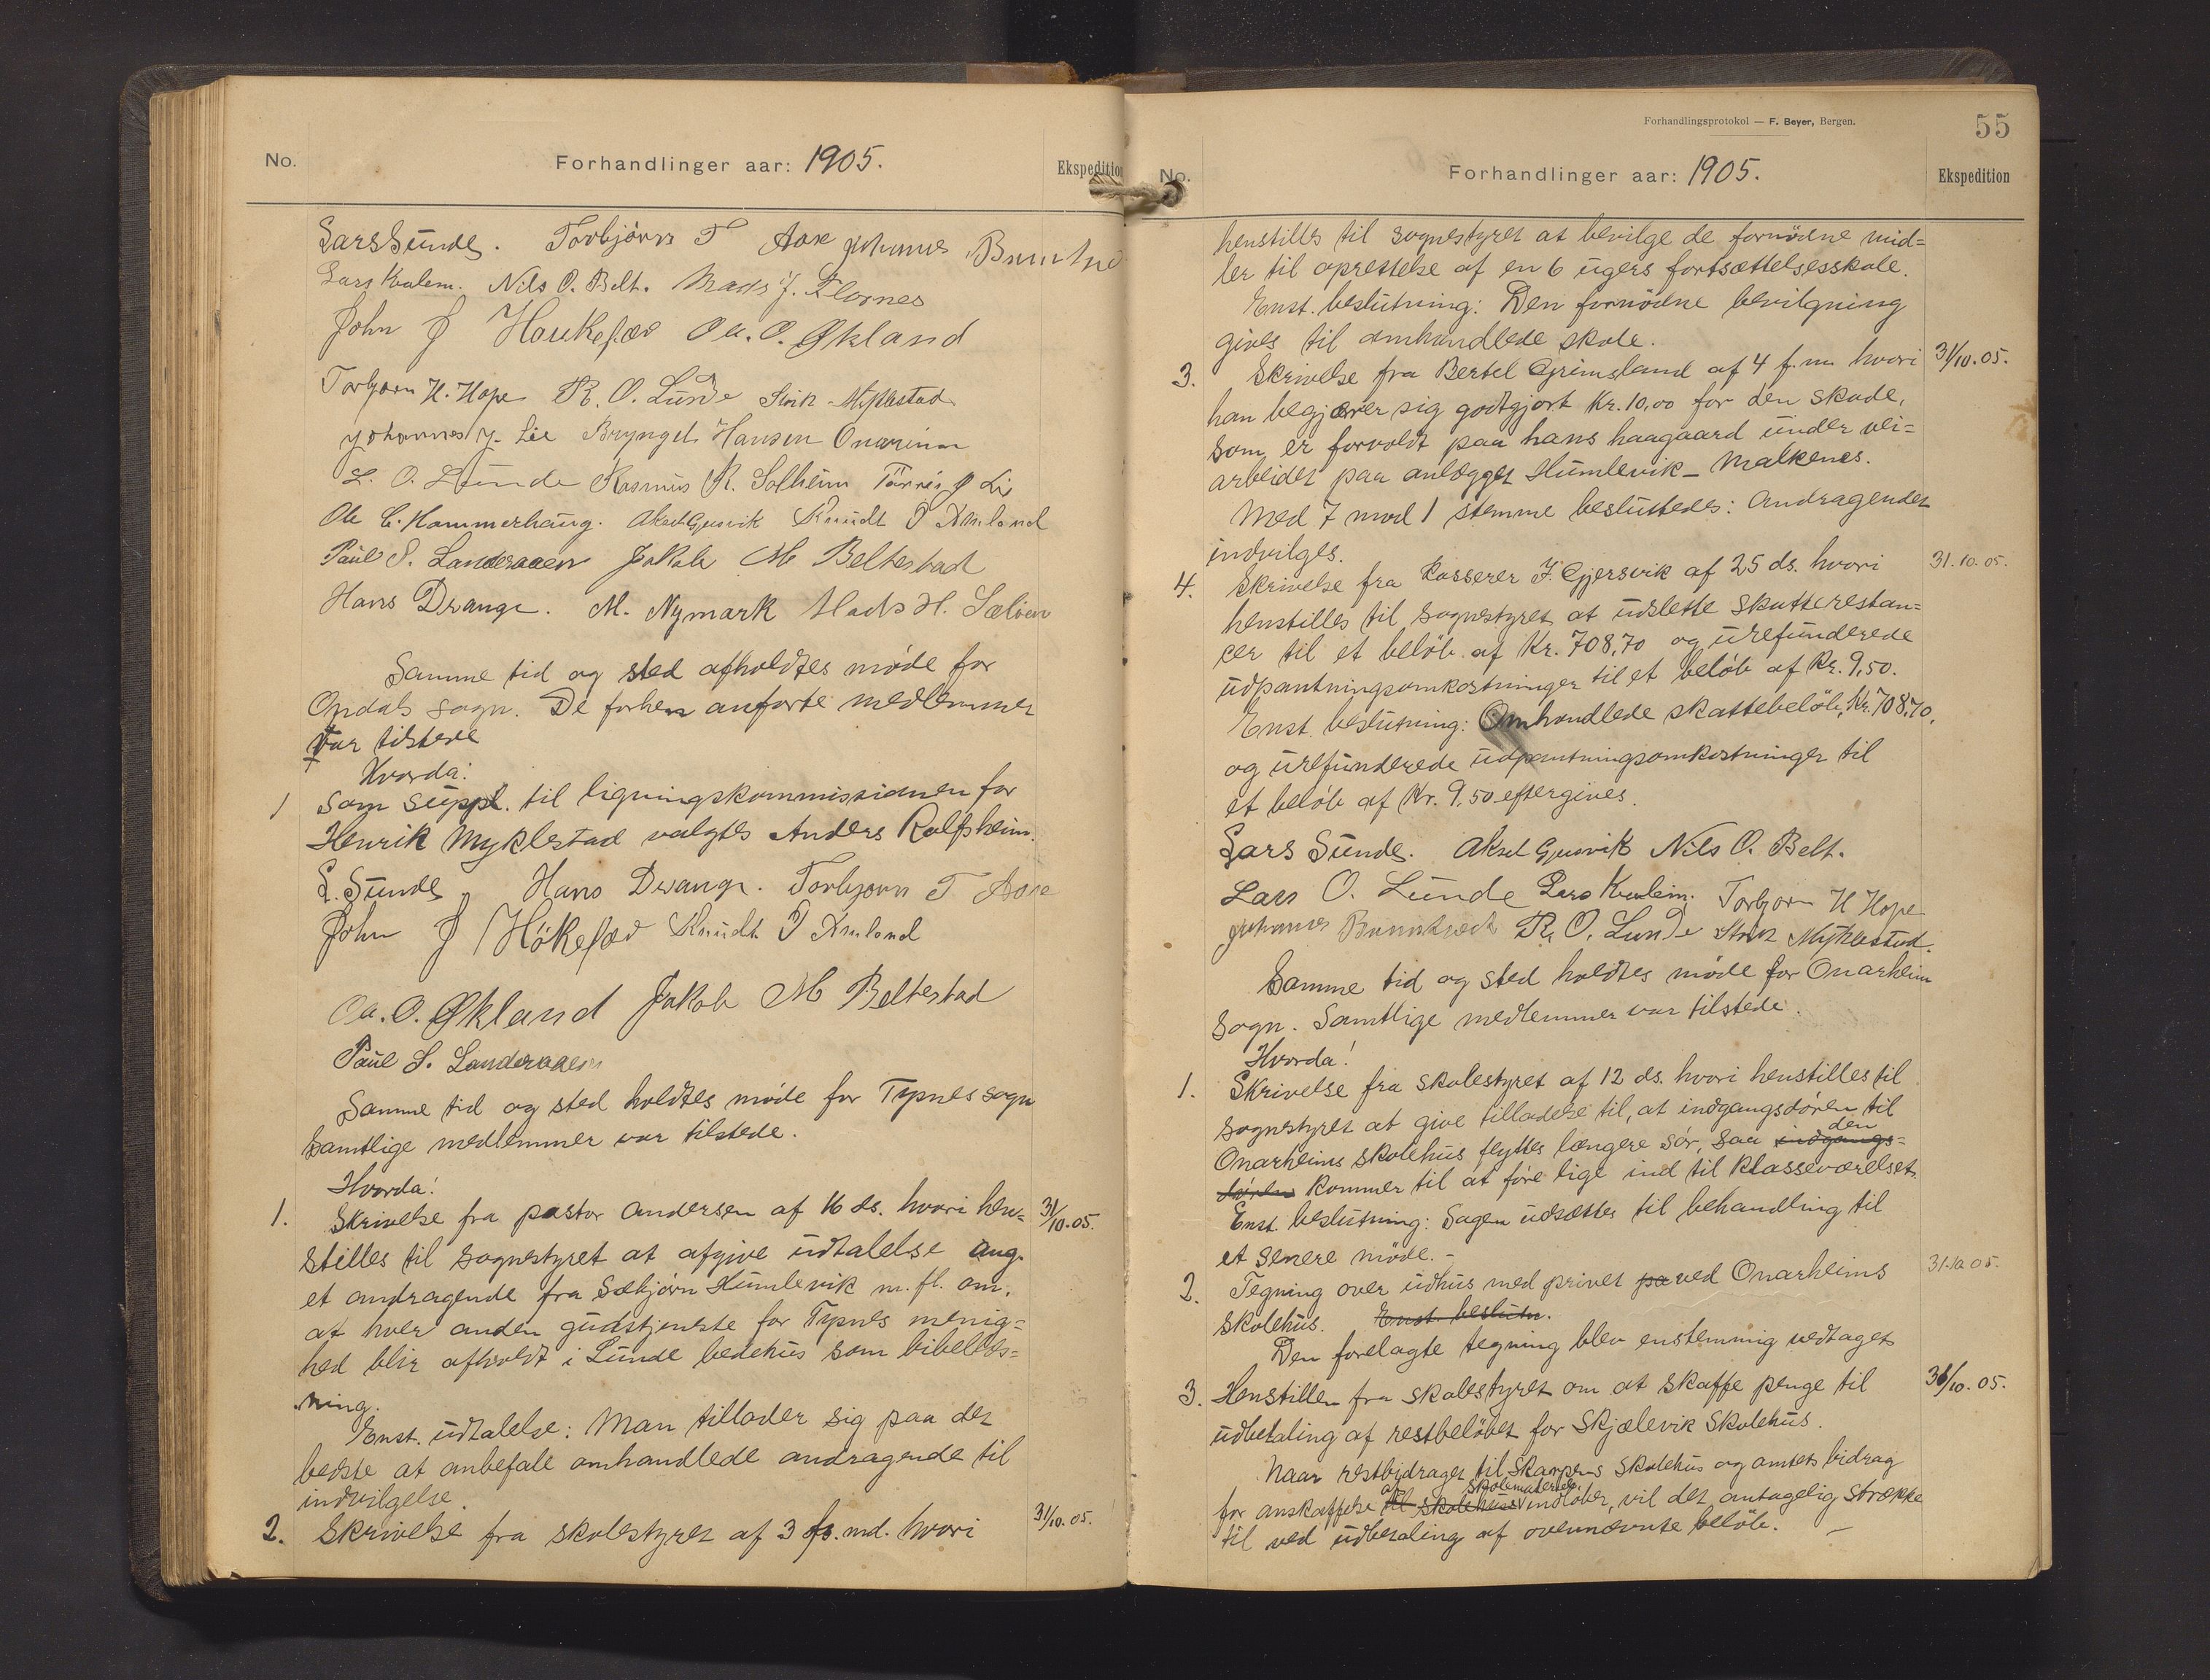 No.
Forhandlinger aar: 1905.
Ekspedition
Lars Sunde. Torbjörn T Aase Johannes
Lars Kvalem. Nils O. Belt. Mads J. Flornes
John J Haukefær Oa. O. Økland
Torbjørn H. Hope R. O. Lunde Henrik Myklestad
Johannes J. Lie Bryngel Hansen Onarheim
L. O. Lunde Rasmus R. Solheim Tørris J Li
Ole C. Hammerhaug. Aksel Gjersvik Knudt J Amland
Paul S. Landeraaen Jakob M Beltestad
Hans Drange. M. Nymark Mads H. Sæløen
Samme tid og sted afholdtes möde for
Opdals sogn. De forhen anførte medlemmer
var tilstede
Hvorda:
1 Som suppl. til ligningskommissionen for
Henrik Myklestad valgtes Anders Rolfsheim.
L. Sunde Hans Drange. Torbjørn T Aase
John J Hökefær Knudt J Amland
Oa. O. Økland Jakob M Beltestad
Paul S. Landeraaen
Samme tid og sted holdtes möde for Tysnes sogn
Samtlige medlemmer var tilstede.
Hvorda:
1. Skrivelse fra pastor Andersen af 16 ds. hvori hen= 31/10.05.
stilles til sognestyret at afgive udtalelse ang.
et andragende fra Sæbjörn Humlevik m. fl. om,
at hver anden gudstjeneste for Tysnes menig=
hed blir afholdt i Lunde bedehus som bibellæs=
ning.
Enst. udtalelse: Man tillader sig paa det
bedste at anbefale omhandlede andragende til
indvilgelse.
2. Skrivelse fra skolestyret af 3 fs. md. hvori 31/10.05.
Forhandlingsprotokol — F. Beyer, Bergen.
55
No.
Forhandlinger aar: 1905.
Ekspedition
henstilles til sognestyret at bevilge de fornödne mid=
ler til oprettelse af en 6 ugers fortsættelsesskole.
Enst. beslutning: Den fornödne bevilgning
gives til omhandlede skole.
3. Skrivelse fra Bertel Grimsland af 4 f. m. hvori 31/10.05.
han begjærer sig godtgjort Kr. 10,00 for den skade,
som er forvoldt paa hans haagaard under vei=
arbeidet paa anlægget Humlevik - Malkenes.
Med 7 mod 1 stemme besluttedes: Andragendet
indvilges.
4. Skrivelse fra kasserer J. Gjersvik af 25 ds. hvori 31.10.05.
henstilles til sognestyret at udslette skatterestan=
cer til et belöb af Kr. 708,70 og urefunderede
udpantningsomkostninger til et belöb af Kr. 9,50.
Enst. beslutning: Omhandlede skattebelöb, Kr. 708,70,
og urefunderede udpantningsomkostninger til
et belöb af Kr. 9,50 eftergives.
Lars Sunde. Aksel Gjersvik Nils O. Belt.
Lars O. Lunde Lars Kvalem. Torbjørn H Hope
Johannes R. O. Lunde Henrik Myklestad.
Samme tid og sted holdtes möde for Onarheim
sogn. Samtlige medlemmer var tilstede.
Hvorda!
1. Skrivelse fra skolestyret af 12 ds. hvori henstilles til
sognestyret at give tilladelse til, at indgangsdören til
Onarheims skolehus flyttes længere sör, saa indgangs= den
dören kommer til at före lige ind til klasseværelset.
Enst. beslutning: Sagen udsættes til behandling til
et senere möde. -
2. Tegning over udhus med privet pa ved Onarheims 31.10.05.
skolehus. Enst. beslutn.
Den forelagte tegning blev enstemmig vedtaget
3. Henstillen fra skolestyret om at skaffe penge til 31/10.05.
udbetaling af restbelöbet for Skjælevik Skolehus.
Naar restbidraget til Skarpens skolehus og amtets bidrag
for anskaffelse til skolehus af skolemateriel indlöber, vil det antagelig strække
til ved udbetaling af ovennævnte belöb. -